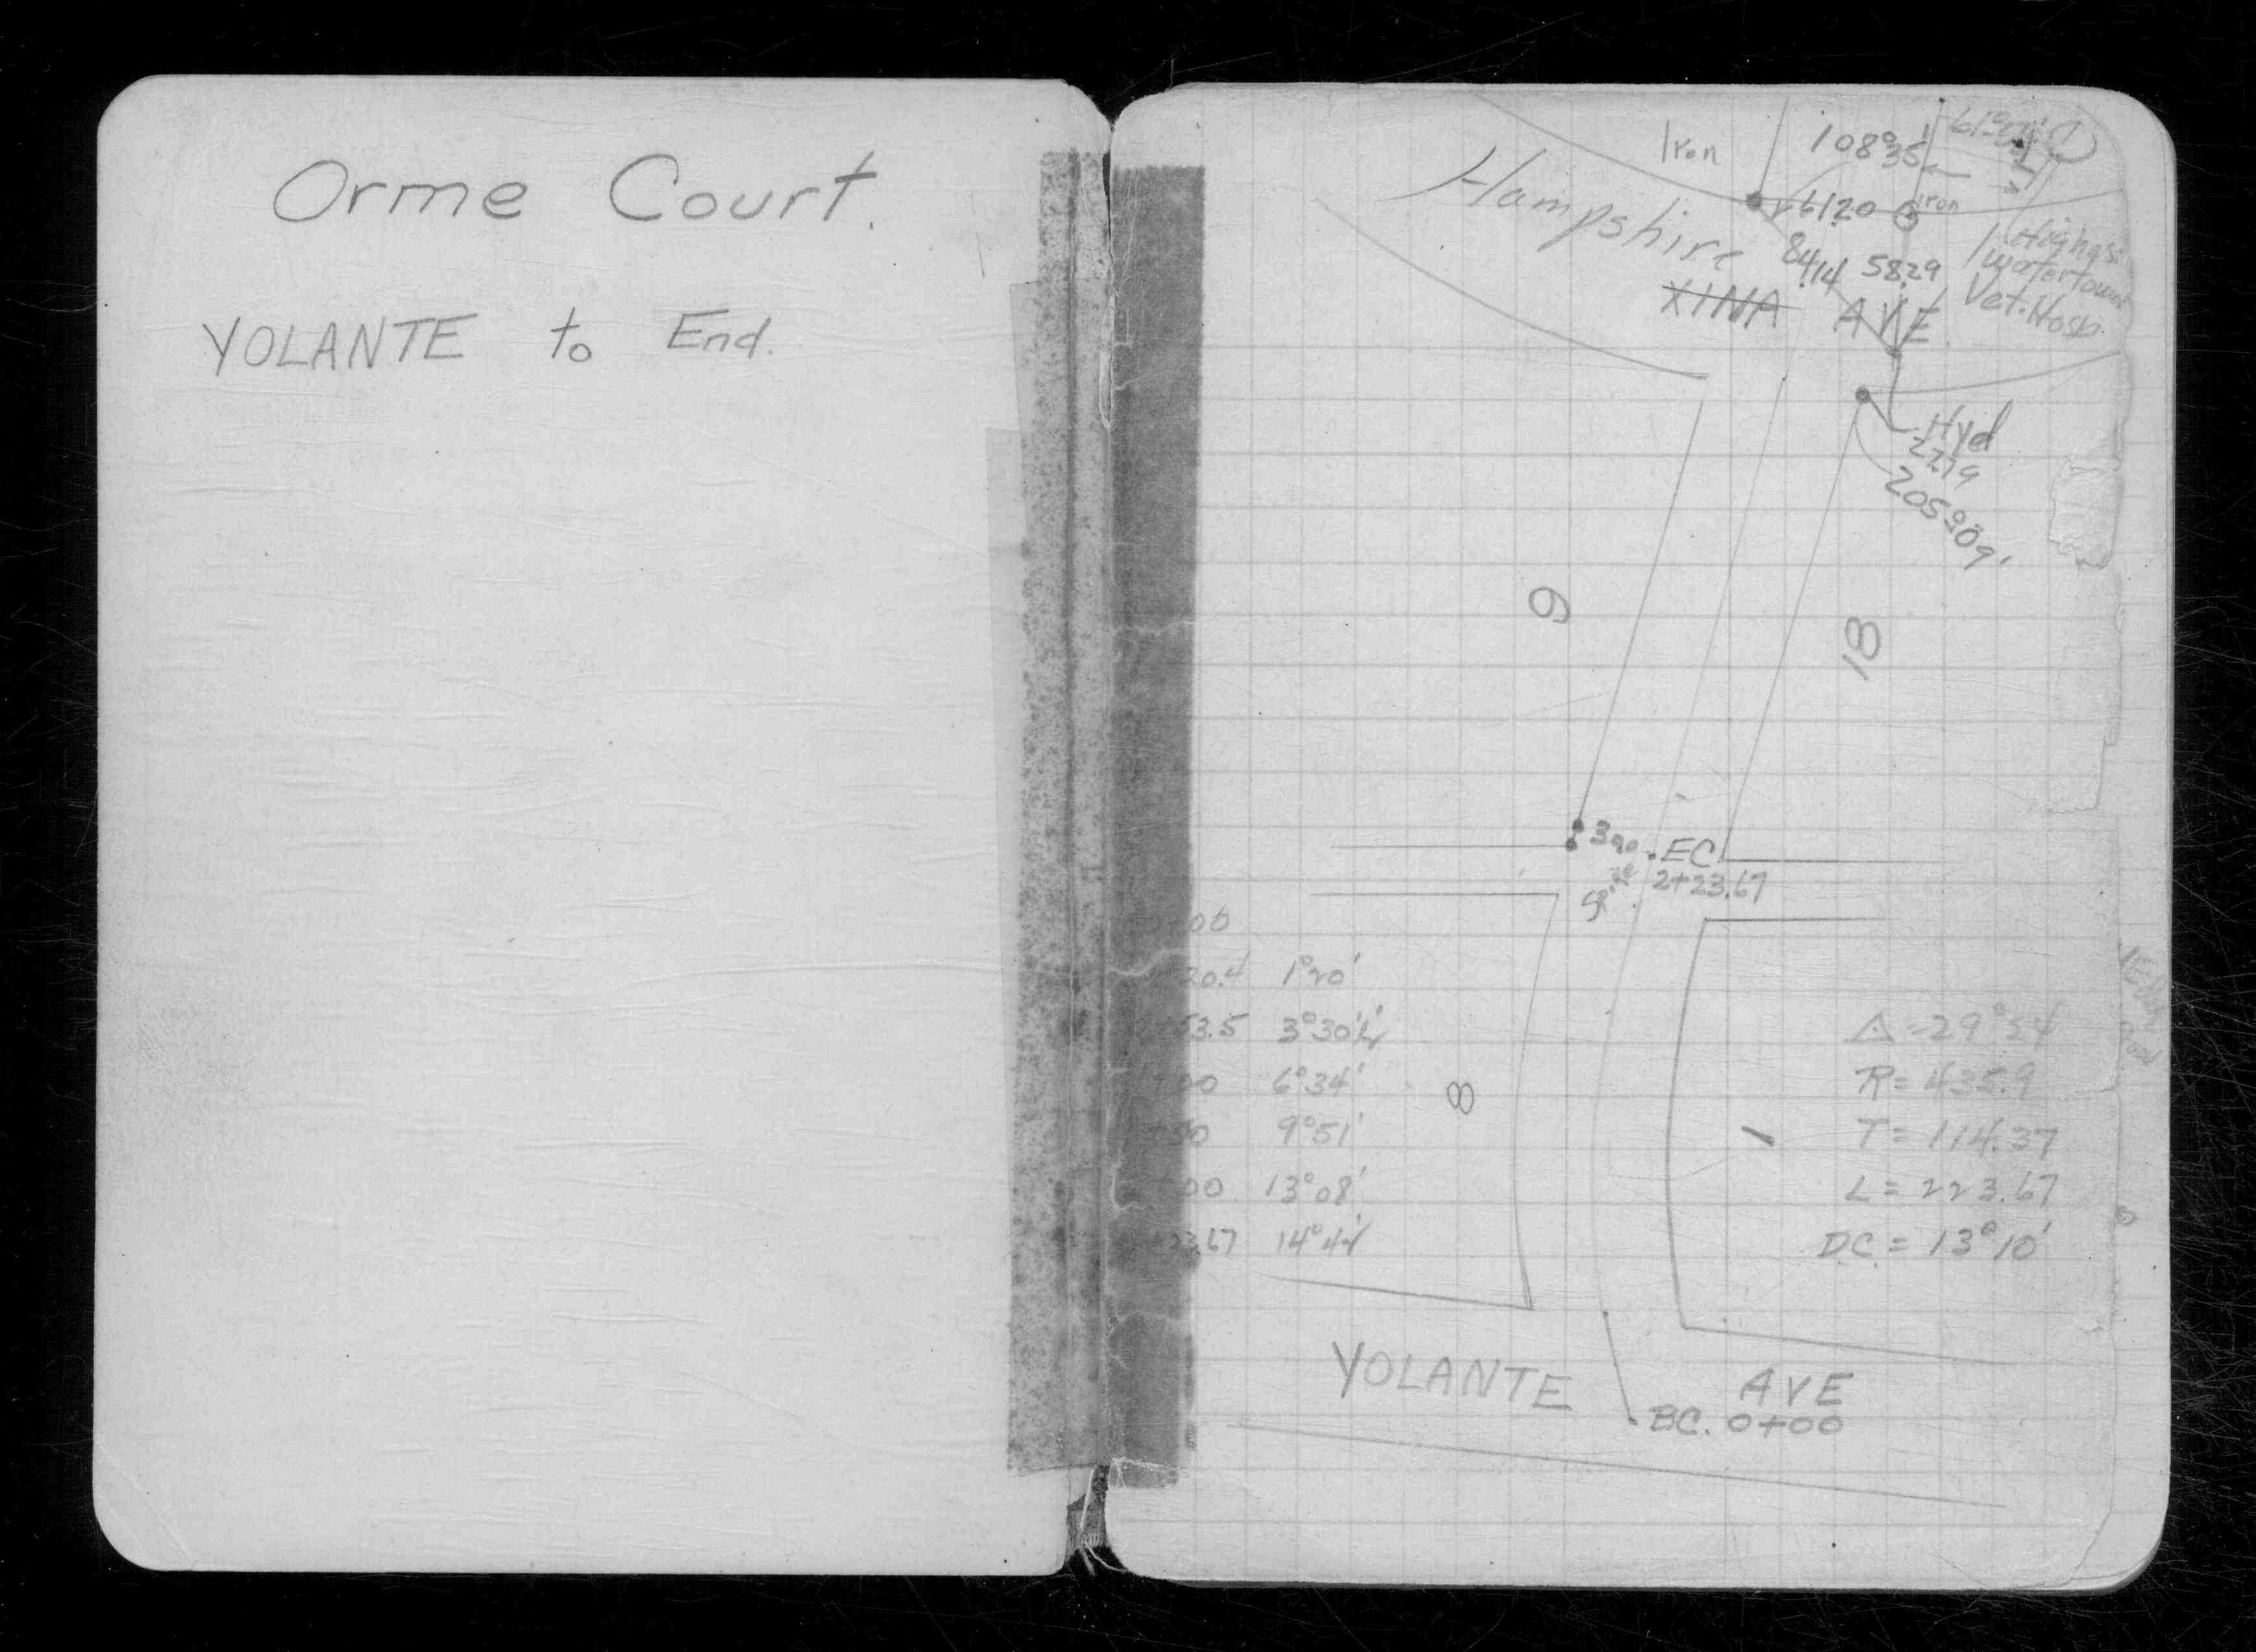 Orme Court.
YOLANTE to End.
Iron
108°35'
Iron
6120
Hampshire
8414 5829
XINA AVE.
Highest
watertower
Vet. Hosp.
Hyd
2279
205°09'
9
18
390
EC
Spike
2+23.67
00
20.4 1°20'
53.5 3°30½'
00 6°34'
+50 9°51'
00 13°08'
23.67 14°42'
8
1
Δ = 29°24'
R = 435.9
T = 114.37
L = 223.67
D.C. = 13°10'
YOLANTE AVE
BC. 0+00